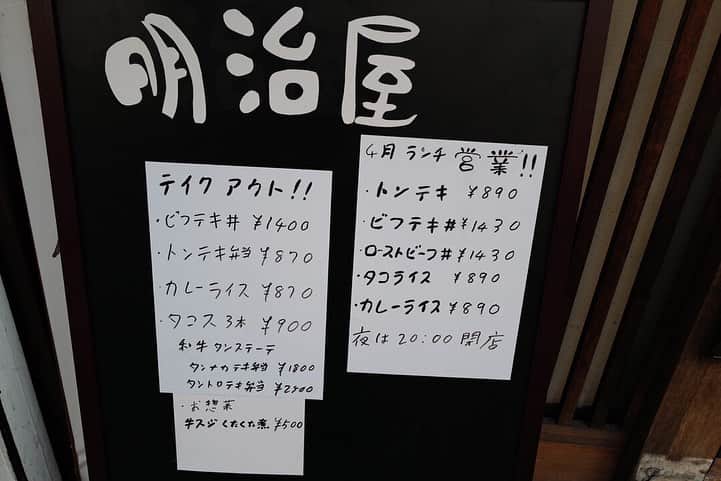 明治屋
テイクアウト!!
・ビフテキ丼 ¥1400
・トンテキ弁当 ¥870
・カレーライス ¥870
・タコス3本 ¥900
和牛タンステーキ
タンナカテキ弁当 ¥1800
タントロテキ弁当 ¥2500
・お惣菜
牛スジくたくた煮 ¥500
4月ランチ営業!!
・トンテキ ¥890
・ビフテキ丼 ¥1430
・ローストビーフ丼 ¥1430
・タコライス ¥890
・カレーライス ¥890
夜は20:00閉店